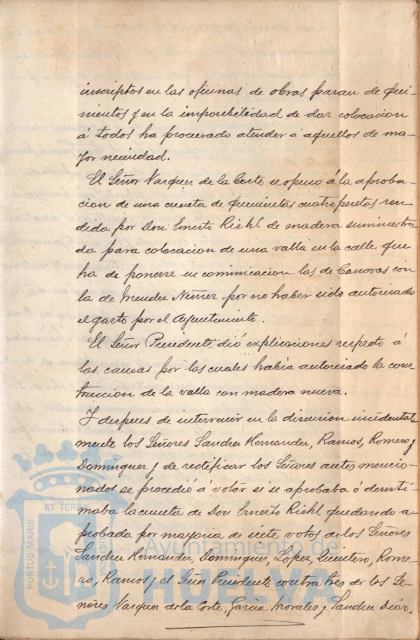 inscriptos en las oficinas de obras pasan de qui-
nientos y en la imposibilidad de dar colocacion
á todos ha procurado atender á aquellos de ma-
yor necesidad.
El Señor Vazquez de la Corte se opuso á la aproba-
cion de una cuenta de quinientas cuatro pesetas ren-
dida por Don Ernesto Riekl de madera suministra-
da para colocacion de una valla en la calle que
ha de ponerse en comunicacion las de Canovas con
la de Mendez Nuñez por no haber sido autorizado
el gasto por el Ayuntamiento.
El Señor Presidente dió explicaciones respecto á
las causas por las cuales habia autorizado la cons-
truccion de la valla con madera nueva.
Y despues de intervenir en la discusion incidental-
mente los Señores Sanchez Hernandez, Ramos, Romero y
Dominguez y de rectificar los Señores antes mencio-
nados se procedió á votar si se aprobaba ó desesti-
maba la cuenta de Don Ernesto Riekl quedando a-
probada por mayoria de siete votos de los Señores
Sanchez Hernandez, Dominguez, Lopez, Quintero, Rome-
ro, Ramos y el Señor Presidente contra tres de los Se-
ñores Vazquez de la Corte, Garcia Morales y Sanchez Diaz.
PORTUS MARIS
ET TERRAE
Ayuntamiento de
HUELVA